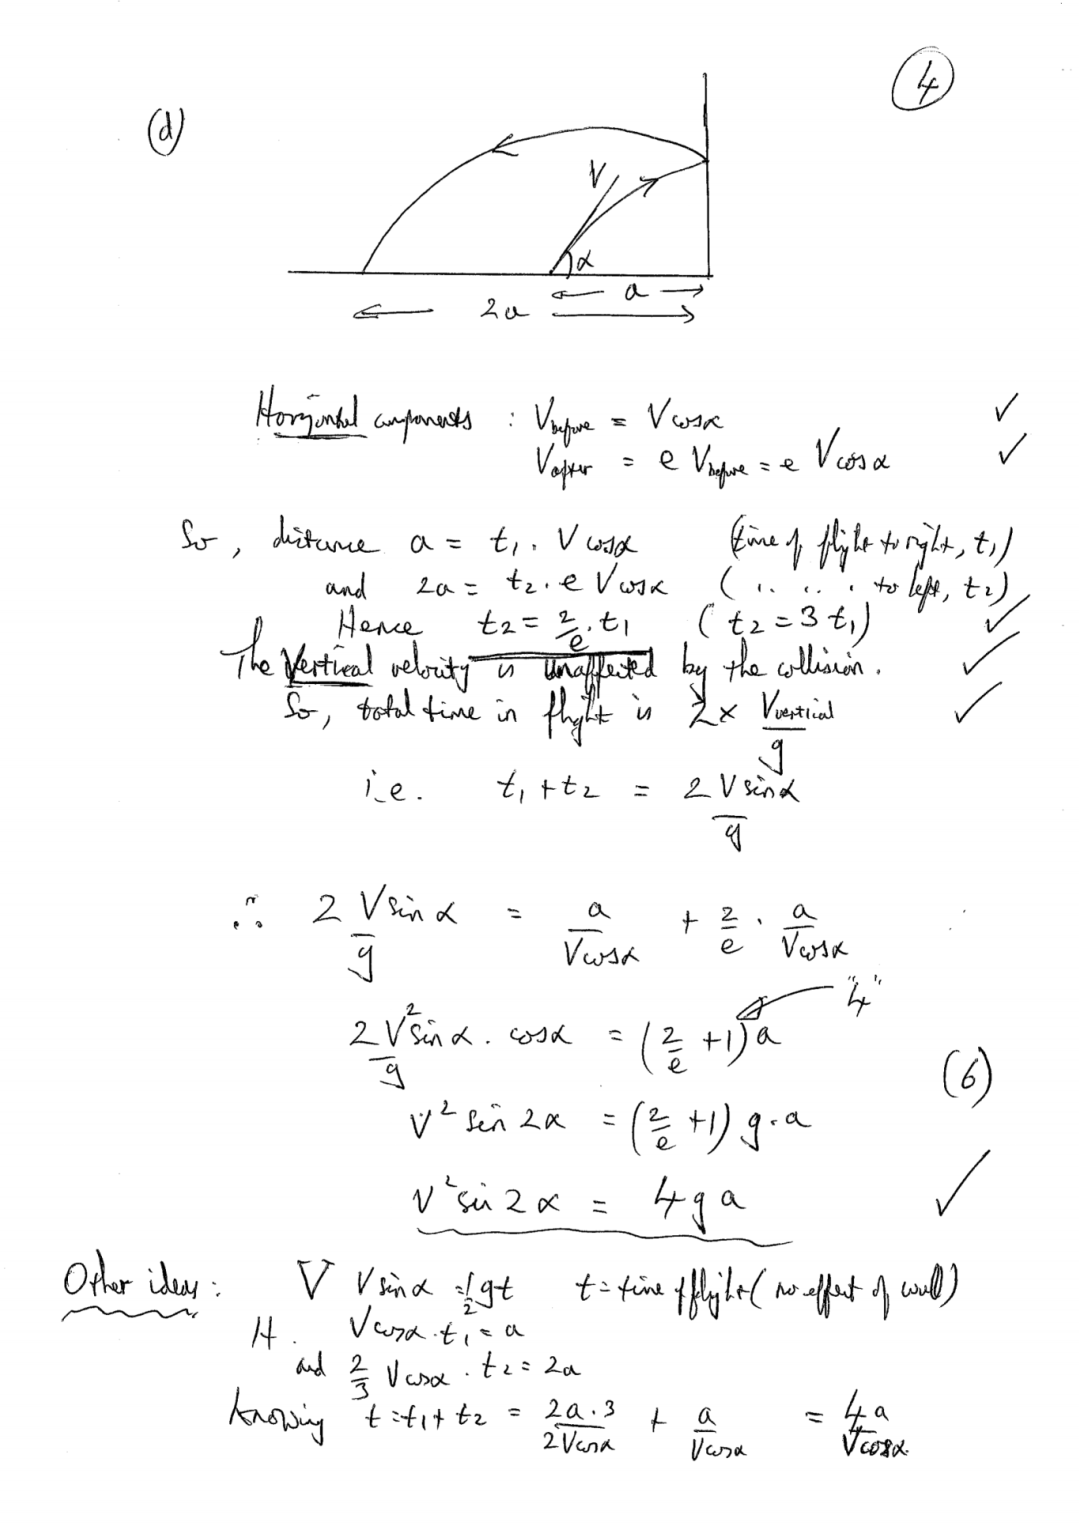 4
(d)
V
α
a
2a
Horizontal components : V before = V cosα ✓
V after = e V before = e V cosα ✓
So, distance a = t₁. V cosα (time of flight to right, t₁)
and 2a = t₂. e V cosα ( .. .. . to left, t₂)
Hence t₂ = 2/e . t₁ ( t₂ = 3 t₁) ✓
The Vertical velocity is unaffected by the collision. ✓
So, total time in flight is 2 × V vertical / g ✓
i.e. t₁ + t₂ = 2 V sinα / g
∴ 2 V sin α / g = a / V cosα + 2/e . a / V cosα
"4"
2 V² sin α . cosα / g = (2/e +1) a
(6)
V² sin 2α = (2/e +1) g.a
V² sin 2α = 4 g a ✓
Other ideas : V V sinα = 1/2 gt t = time of flight ( no effect of wall)
H. V cosα . t₁ = a
and 2/3 V cosα . t₂ = 2a
Knowing t = t₁ + t₂ = 2a.3 / 2V cosα + a / V cosα = 4a / V cosα